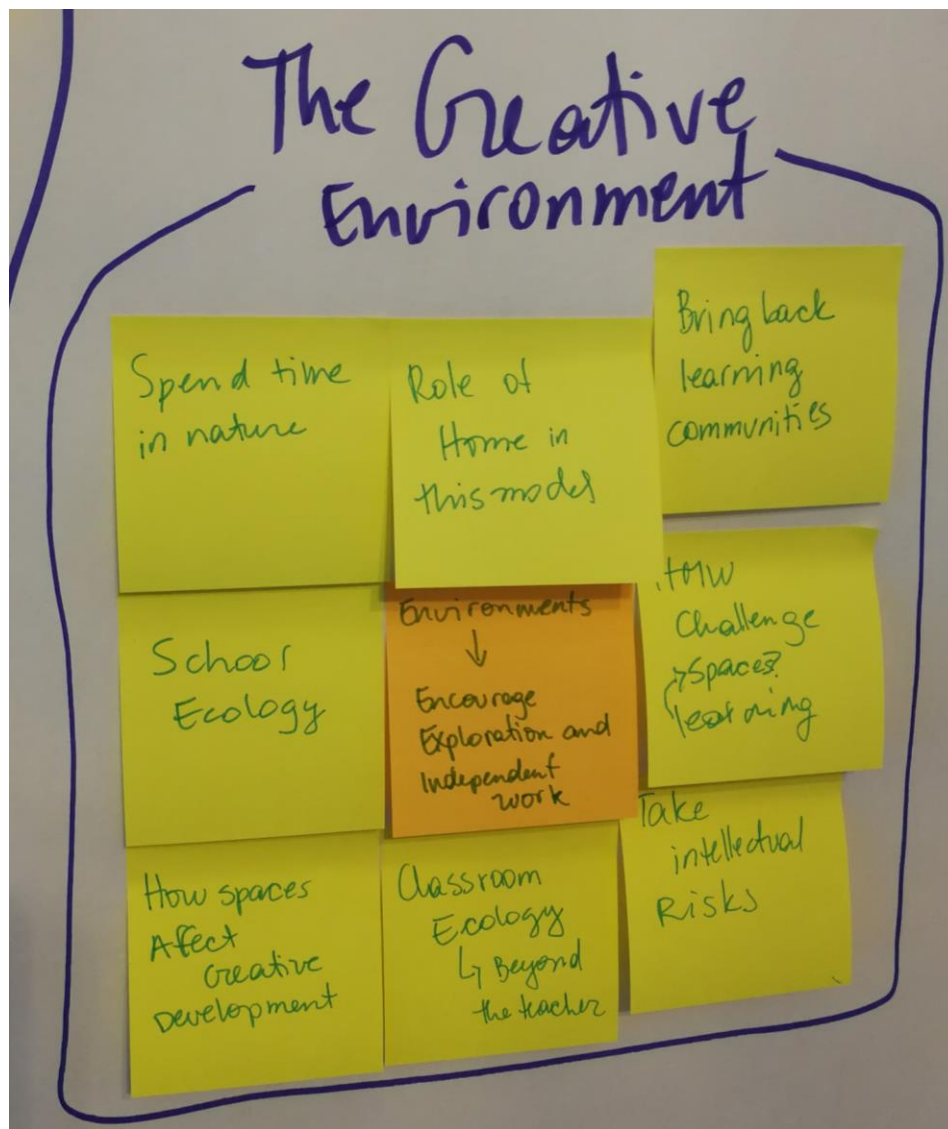 The Creative
Environment
Spend time
in nature
Role of
Home in
this model
Bring back
learning
communities
School
Ecology
Environments
↓
Encourage
Exploration and
Independent
work
How
Challenge
spaces?
learning
How spaces
Affect
creative
Development
Classroom
Ecology
↳ Beyond
the teacher
Take
intellectual
Risks